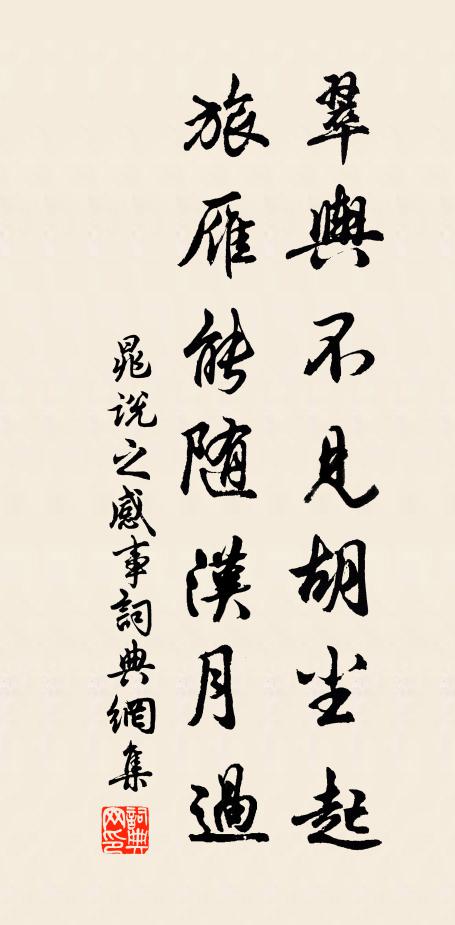 翠輿不見胡尘起
旅雁能随漢月過
晁说之感事詞典網集
詞典網印